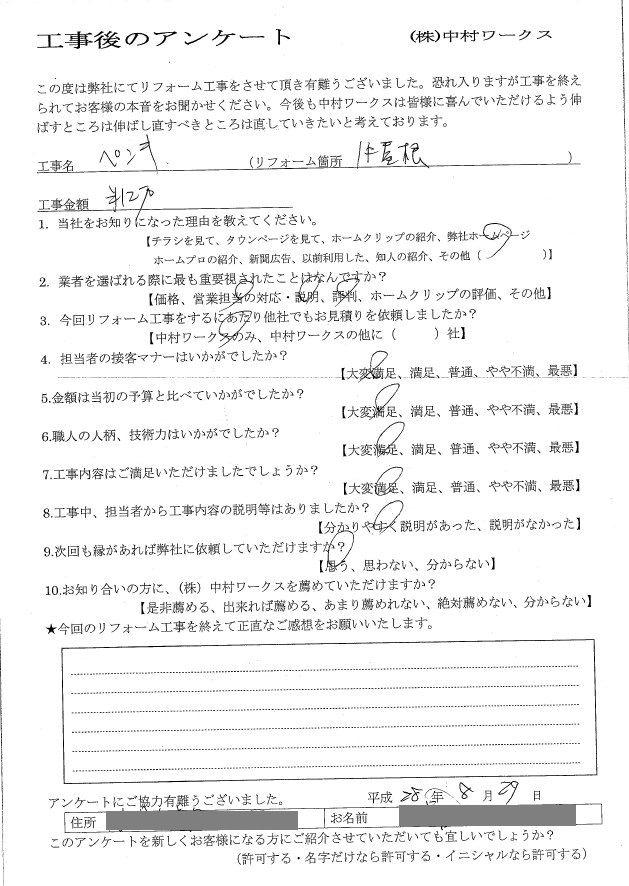 工事後のアンケート (株)中村ワークス
この度は弊社にてリフォーム工事をさせて頂き有難うございました。恐れ入りますが工事を終え
られてお客様の本音をお聞かせください。今後も中村ワークスは皆様に喜んでいただけるよう伸
ばすところは伸ばし直すべきところは直していきたいと考えております。
工事名 ペンキ (リフォーム箇所 屋根 )
工事金額
1. 当社をお知りになった理由を教えてください。
【チラシを見て、タウンページを見て、ホームクリップの紹介、弊社ホームページ
ホームプロの紹介、新聞広告、以前利用した、知人の紹介、その他( )】
2. 業者を選ばれる際に最も重要視されたことはなんですか?
【価格、営業担当の対応・説明、評判、ホームクリップの評価、その他】
3. 今回リフォーム工事をするにあたり他社でもお見積りを依頼しましたか?
【中村ワークスのみ、中村ワークスの他に( )社】
4. 担当者の接客マナーはいかがでしたか?
【大変満足、満足、普通、やや不満、最悪】
5.金額は当初の予算と比べていかがでしたか?
【大変満足、満足、普通、やや不満、最悪】
6.職人の人柄、技術力はいかがでしたか?
【大変満足、満足、普通、やや不満、最悪】
7.工事内容はご満足いただけましたでしょうか?
【大変満足、満足、普通、やや不満、最悪】
8.工事中、担当者から工事内容の説明等はありましたか?
【分かりやすく説明があった、説明がなかった】
9.次回も縁があれば弊社に依頼していただけますか?
【思う、思わない、分からない】
10.お知り合いの方に、(株)中村ワークスを薦めていただけますか?
【是非薦める、出来れば薦める、あまり薦めれない、絶対薦めない、分からない】
★今回のリフォーム工事を終えて正直なご感想をお願いいたします。
アンケートにご協力有難うございました。 平成 28 年 8 月 29 日
住所 お名前
このアンケートを新しくお客様になる方にご紹介させていただいても宜しいでしょうか?
(許可する・名字だけなら許可する・イニシャルなら許可する)